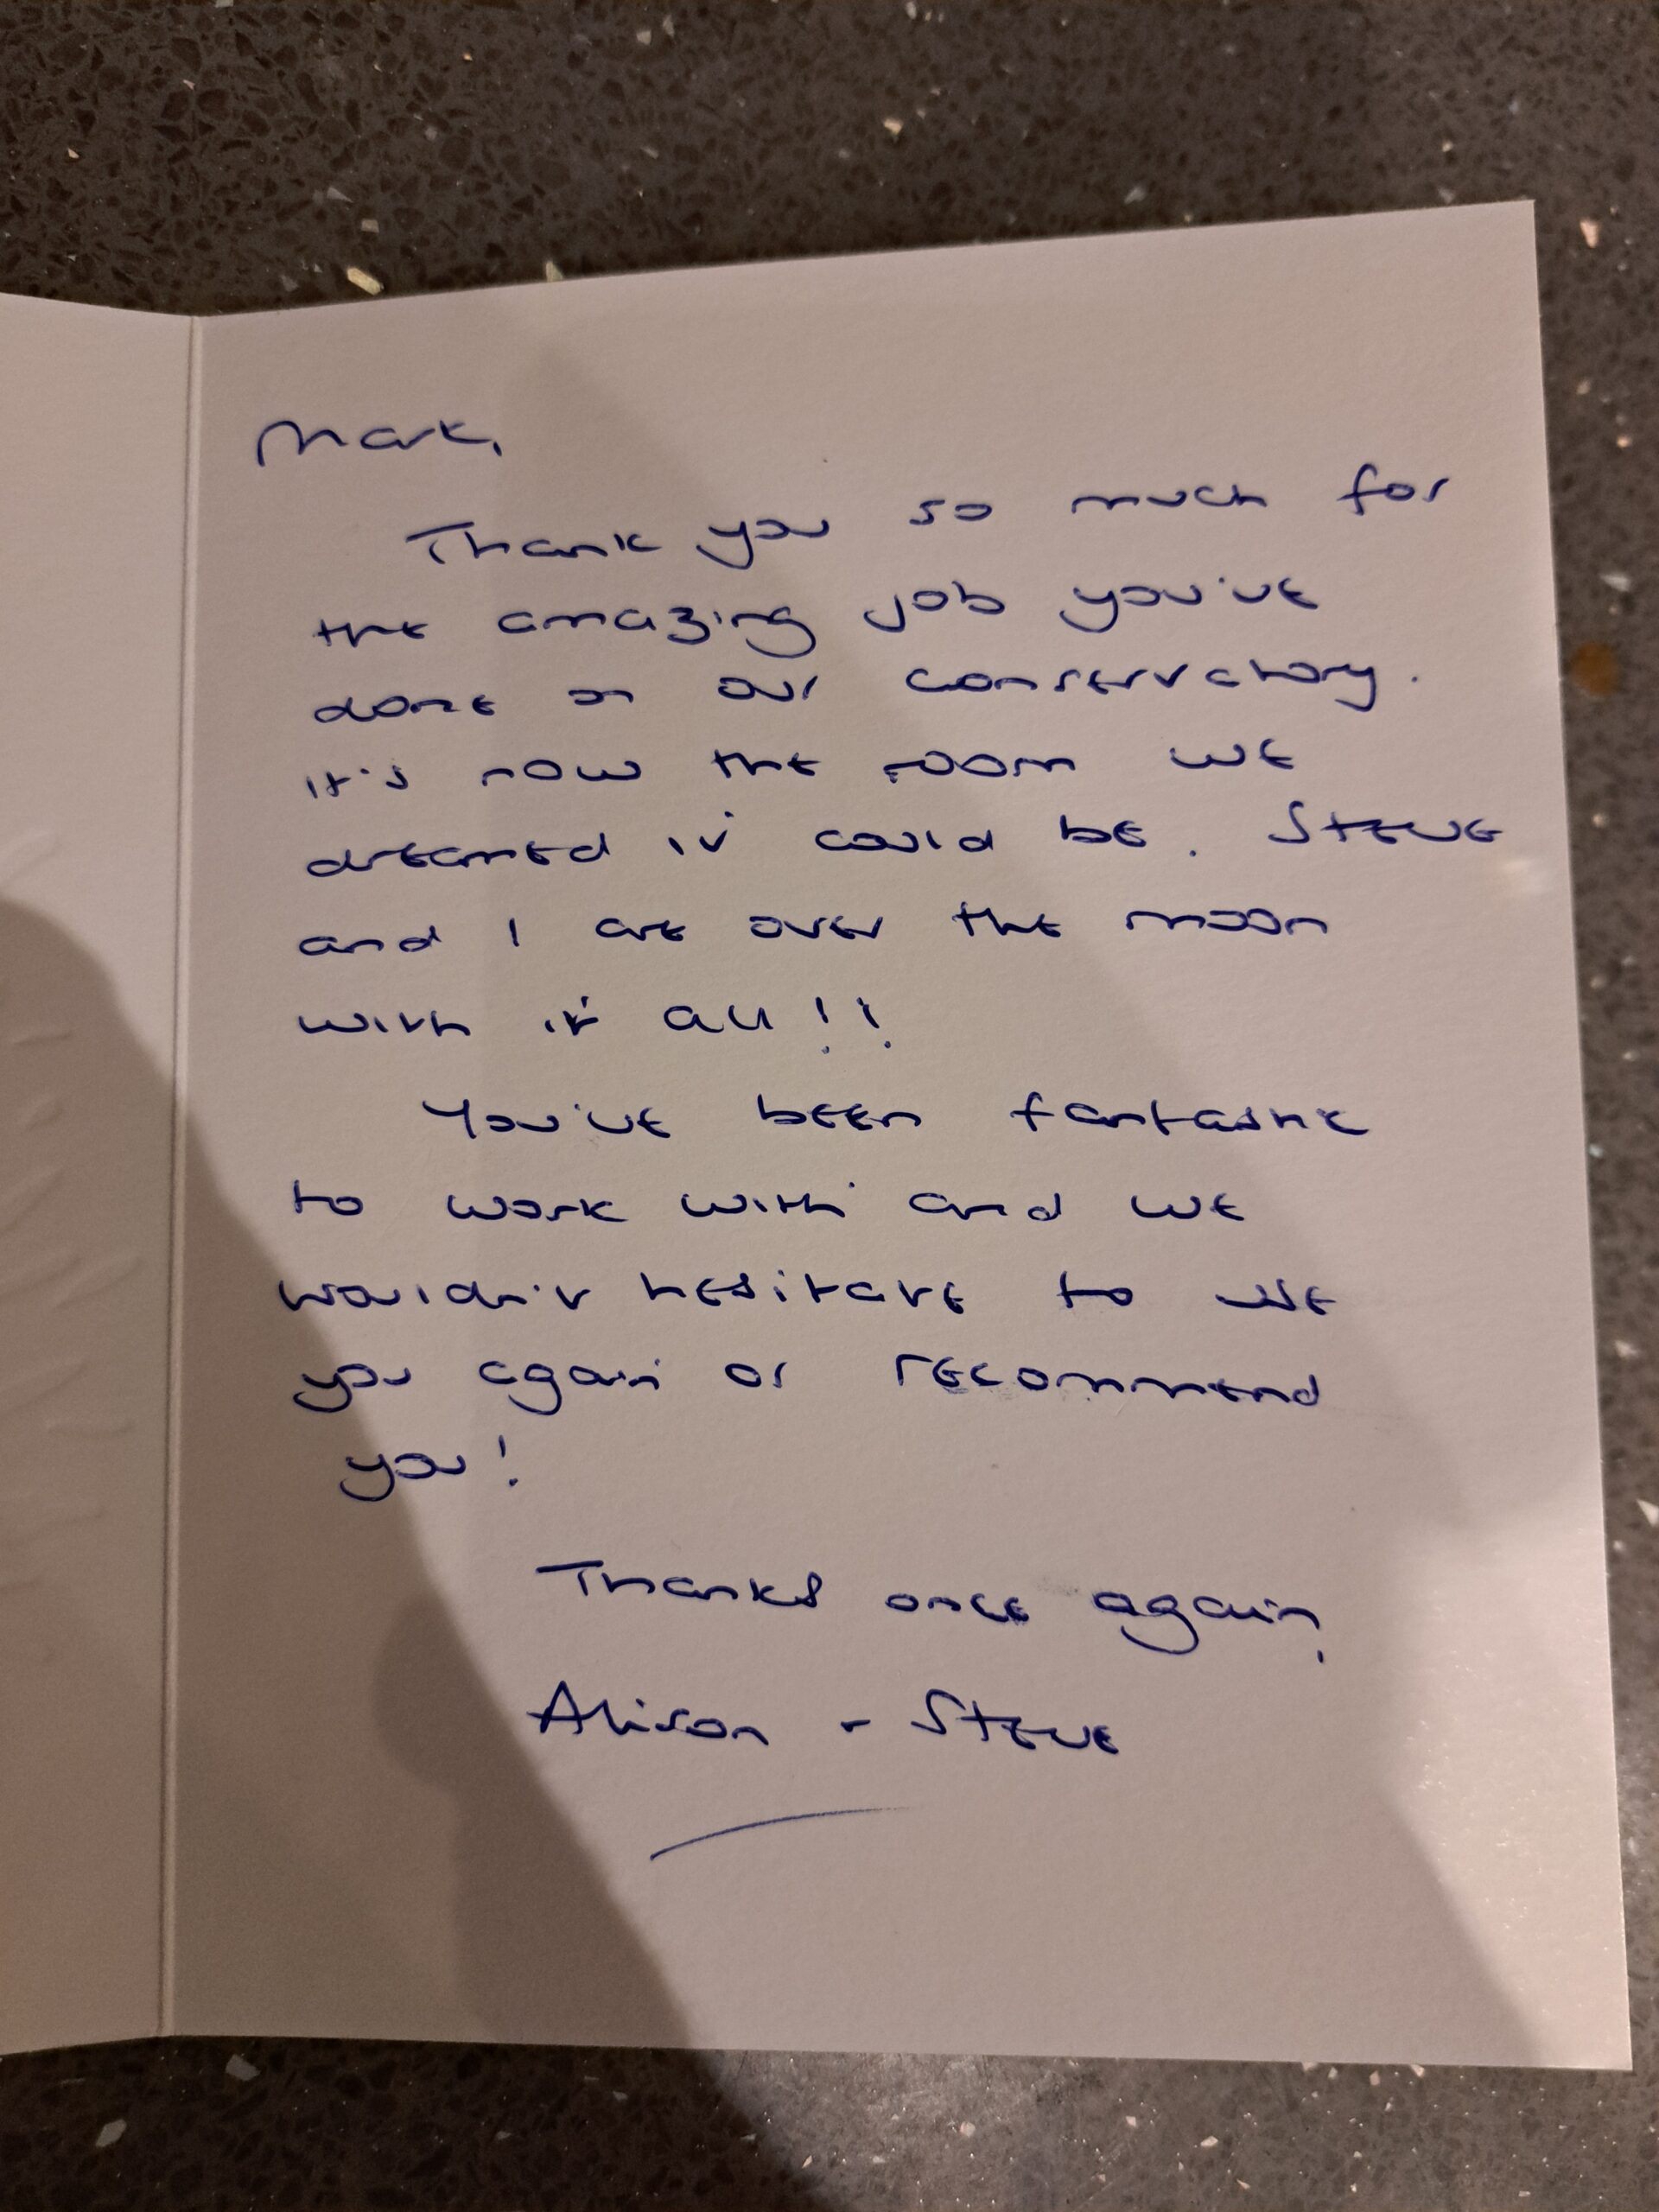 Mark,
Thank you so much for
the amazing job you've
done on our conservatory.
It's now the room we
dreamed it could be. Steve
and I are over the moon
with it all!!
You've been fantastic
to work with and we
wouldn't hesitate to use
you again or recommend
you!
Thanks once again,
Alison + Steve